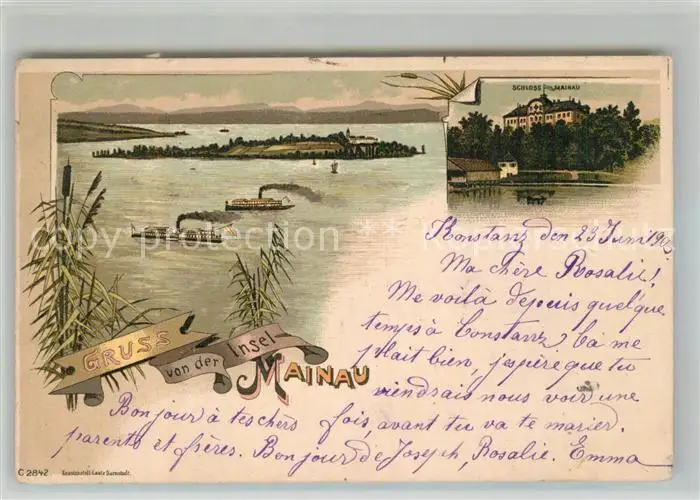 SCHLOSS MAINAU
Konstanz den 23 Juni 190
Ma chère Rosalie!
Me voilà depuis quelque
temps à Constanz Cà me
plait bien, j'espère que tu
viendrais nous voir une
fois, avant tu va te marier.
Bonjour de Joseph, Rosalie. Emma
GRUSS
von der Insel
MAINAU
Bonjour à tes chers
parents et frères.
C 2842 Kunstanstalt Lautz Darmstadt.
copyright protected